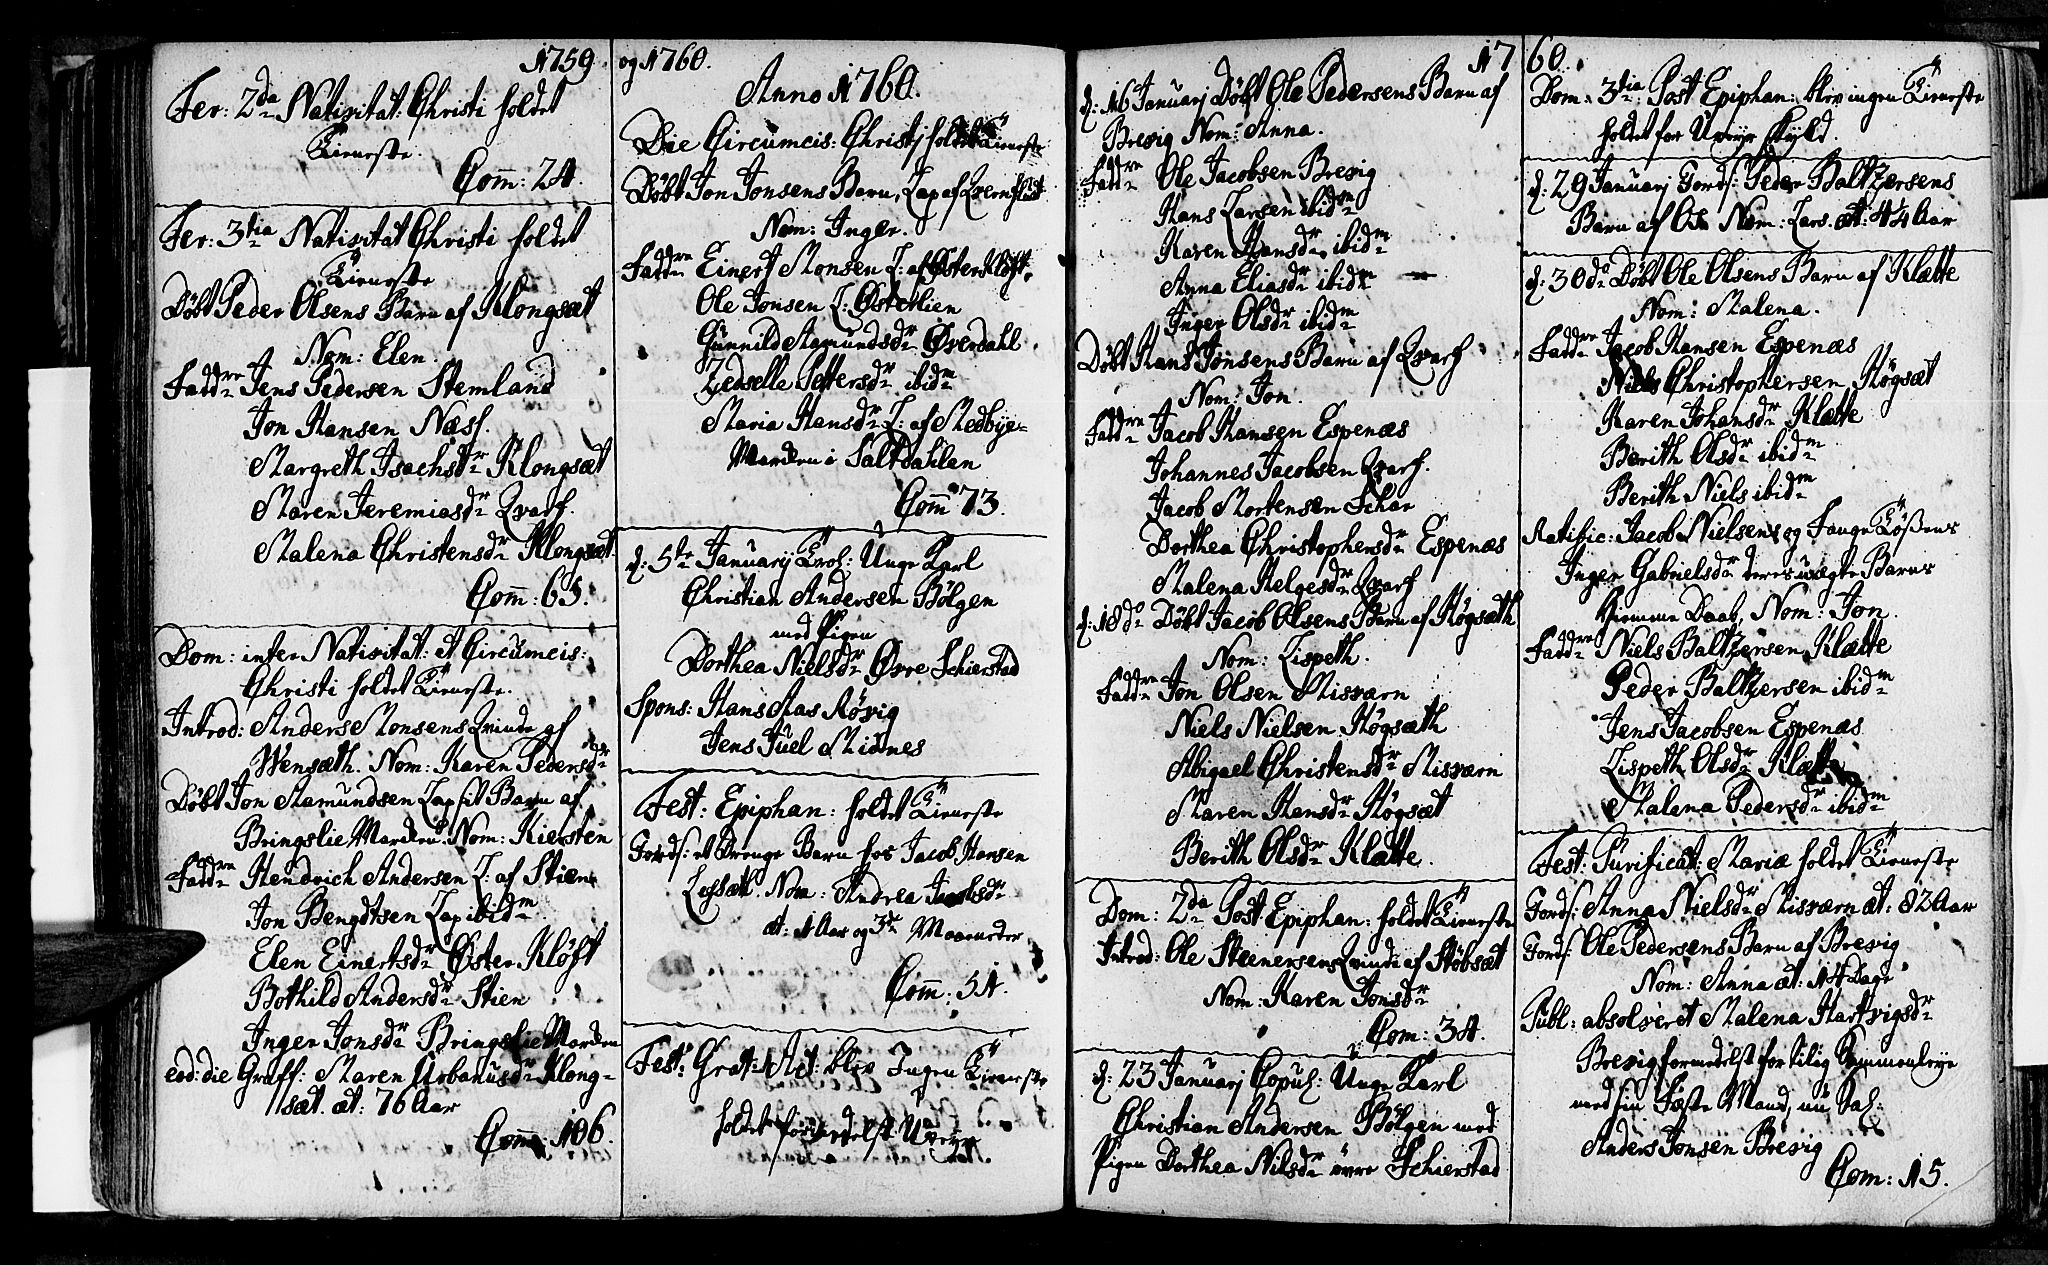 1759.
Fer: 2da Nativitat: Christi holdet
Tieneste.
Comm: 24.
Fer: 3tia Nativitat Christi holdet
Tieneste
Døbt Peder Olsens Barn af Klongsæt
Nom: Elen.
Fadd:re Jens Pedersen Stemland
Jon Hansen Næss.
Margreth Isachsdr Klongsæt
Maren Jeremiasdr Qvarf.
Malena Christensdr Klongsæt.
Comm: 65.
Dom: inter Nativitat: et Circumcis:
Christi holdet Tieneste.
Introd: Anders Monsens Qvinde af
Wensæth. Nom: Karen Pedersdr
Døbt Jon Aamundsen Lap sit Barn af
Bringslie Marken. Nom: Kiersten
Fadd:re Hendrich Andersen L: af Stien
Jon Bengdtsen Lap ibidm
Elen Einertsdr Øster Kløft
Bothild Andersdr Stien
Inger Jonsdr Bringslie Marken
eod: die Graff: Maren Urbanusdr Klong-
sæt. æt: 76 Aar
Comm 106.
og 1760.
Anno 1760.
Die Circumcis: Christj holdet Tieneste
Døbt Jon Jonsens Barn, Lap af
Nom: Inger.
Fadd:re Einert Monsen L: af Øster Kløft.
Ole Jonsen L: Østerlien
Gunnild Aamundsdr Øverdahl
Zedselle Pettersdr ibidm
Maria Hansdr L: af Medbye-
Marken i Saltdahlen
Comm 73.
d: 5te Januarij Trol: Unge Karl
Christian Andersen Bølgen
med Pigen
Dorthea Nielsdr Øvre Schierstad
Spons: Hans Aas Røvig
Jens Juel Midnes
Fest: Epiphan: holdet Tieneste
Jords: et Drenge Barn hos Jacob Hansen
Nom: Andrea Jacobsdr
æt: 1 Aar og 3de Maaneder
Comm: 51.
Fest: Grat: Act: blev Ingen Tieneste
holdet formedelst Uveyr.
1760.
d: 16 Januarj Døbt Ole Pedersens Barn af
Brevig Nom: Anna.
Fadd:re Ole Jacobsen Brevig
Hans Larsen ibidm
Karen Hansdr ibidm
Anna Eliasdr ibidm
Inger Olsdr ibidm
Døbt Hans Jonsens Barn af Qvarf
Nom: Jon.
Fadd:re Jacob Hansen Espenæs
Johannes Jacobsen Qvarf.
Jacob Mortensen Schar
Dorthea Christophersdr Espenæs
Malena Helgesdr Qvarf
d: 18do Døbt Jacob Olsens Barn af Høgsæth
Nom: Lispeth.
Fadd:re Jon Olsen Misværn
Niels Nielsen Høgsæth
Abigael Christensdr Misværn
Maren Hansdr Høgsæt
Berith Olsdr Klætte.
Dom: 2da Post Epiphan: holdet Tieneste
Introd: Ole Steenersens Qvinde af Støbsæt
Nom: Karen Jonsdr
Com: 34.
d: 23 Januarj Copul: Unge Karl
Christian Andersen Bølgen med
Pigen Dorthea Nilsdr øvre Schierstad
Dom: 3tia Post Epiphan: blev ingen Tieneste
holdet for Uveyr skyld.
d: 29 Januarj Jords: Peder Baltzersens
Barn af Nom: Lars. æt: 4 1/4 Aar
d: 30do Døbt Ole Olsens Barn af Klætte
Nom: Malena.
Fadd:re Jacob Hansen Espenæs
Niels Christophersen Høgsæt
Karen Johansdr Klætte
Berith Olsdr ibidm
Berith Niels ibidm
Ratific: Jacob Nielsens og
Inger Gabrielsdr deres uægte Barns
Hiemme Daab, Nom: Jon.
Fadd:re Niels Baltzersen Klætte
Peder Baltzersen ibidm
Jens Jacobsen Espenæs
Lispeth Olsdr Klætte
Malena Pedersdr ibidm
Fest: Purificat: Mariæ holdet Tieneste
Jords: Anna Nielsdr Misværn æt: 82 Aar
Jords: Ole Pedersens Barn af Brevig
Nom: Anna æt: 14 Dage
Publ: absolveret Malena Hartvigsdr
Brevig formedelst for tilig Sammenleye
med sin Fæste Mand, nu Sal:
Anders Jonsen Brevig
Com: 15.